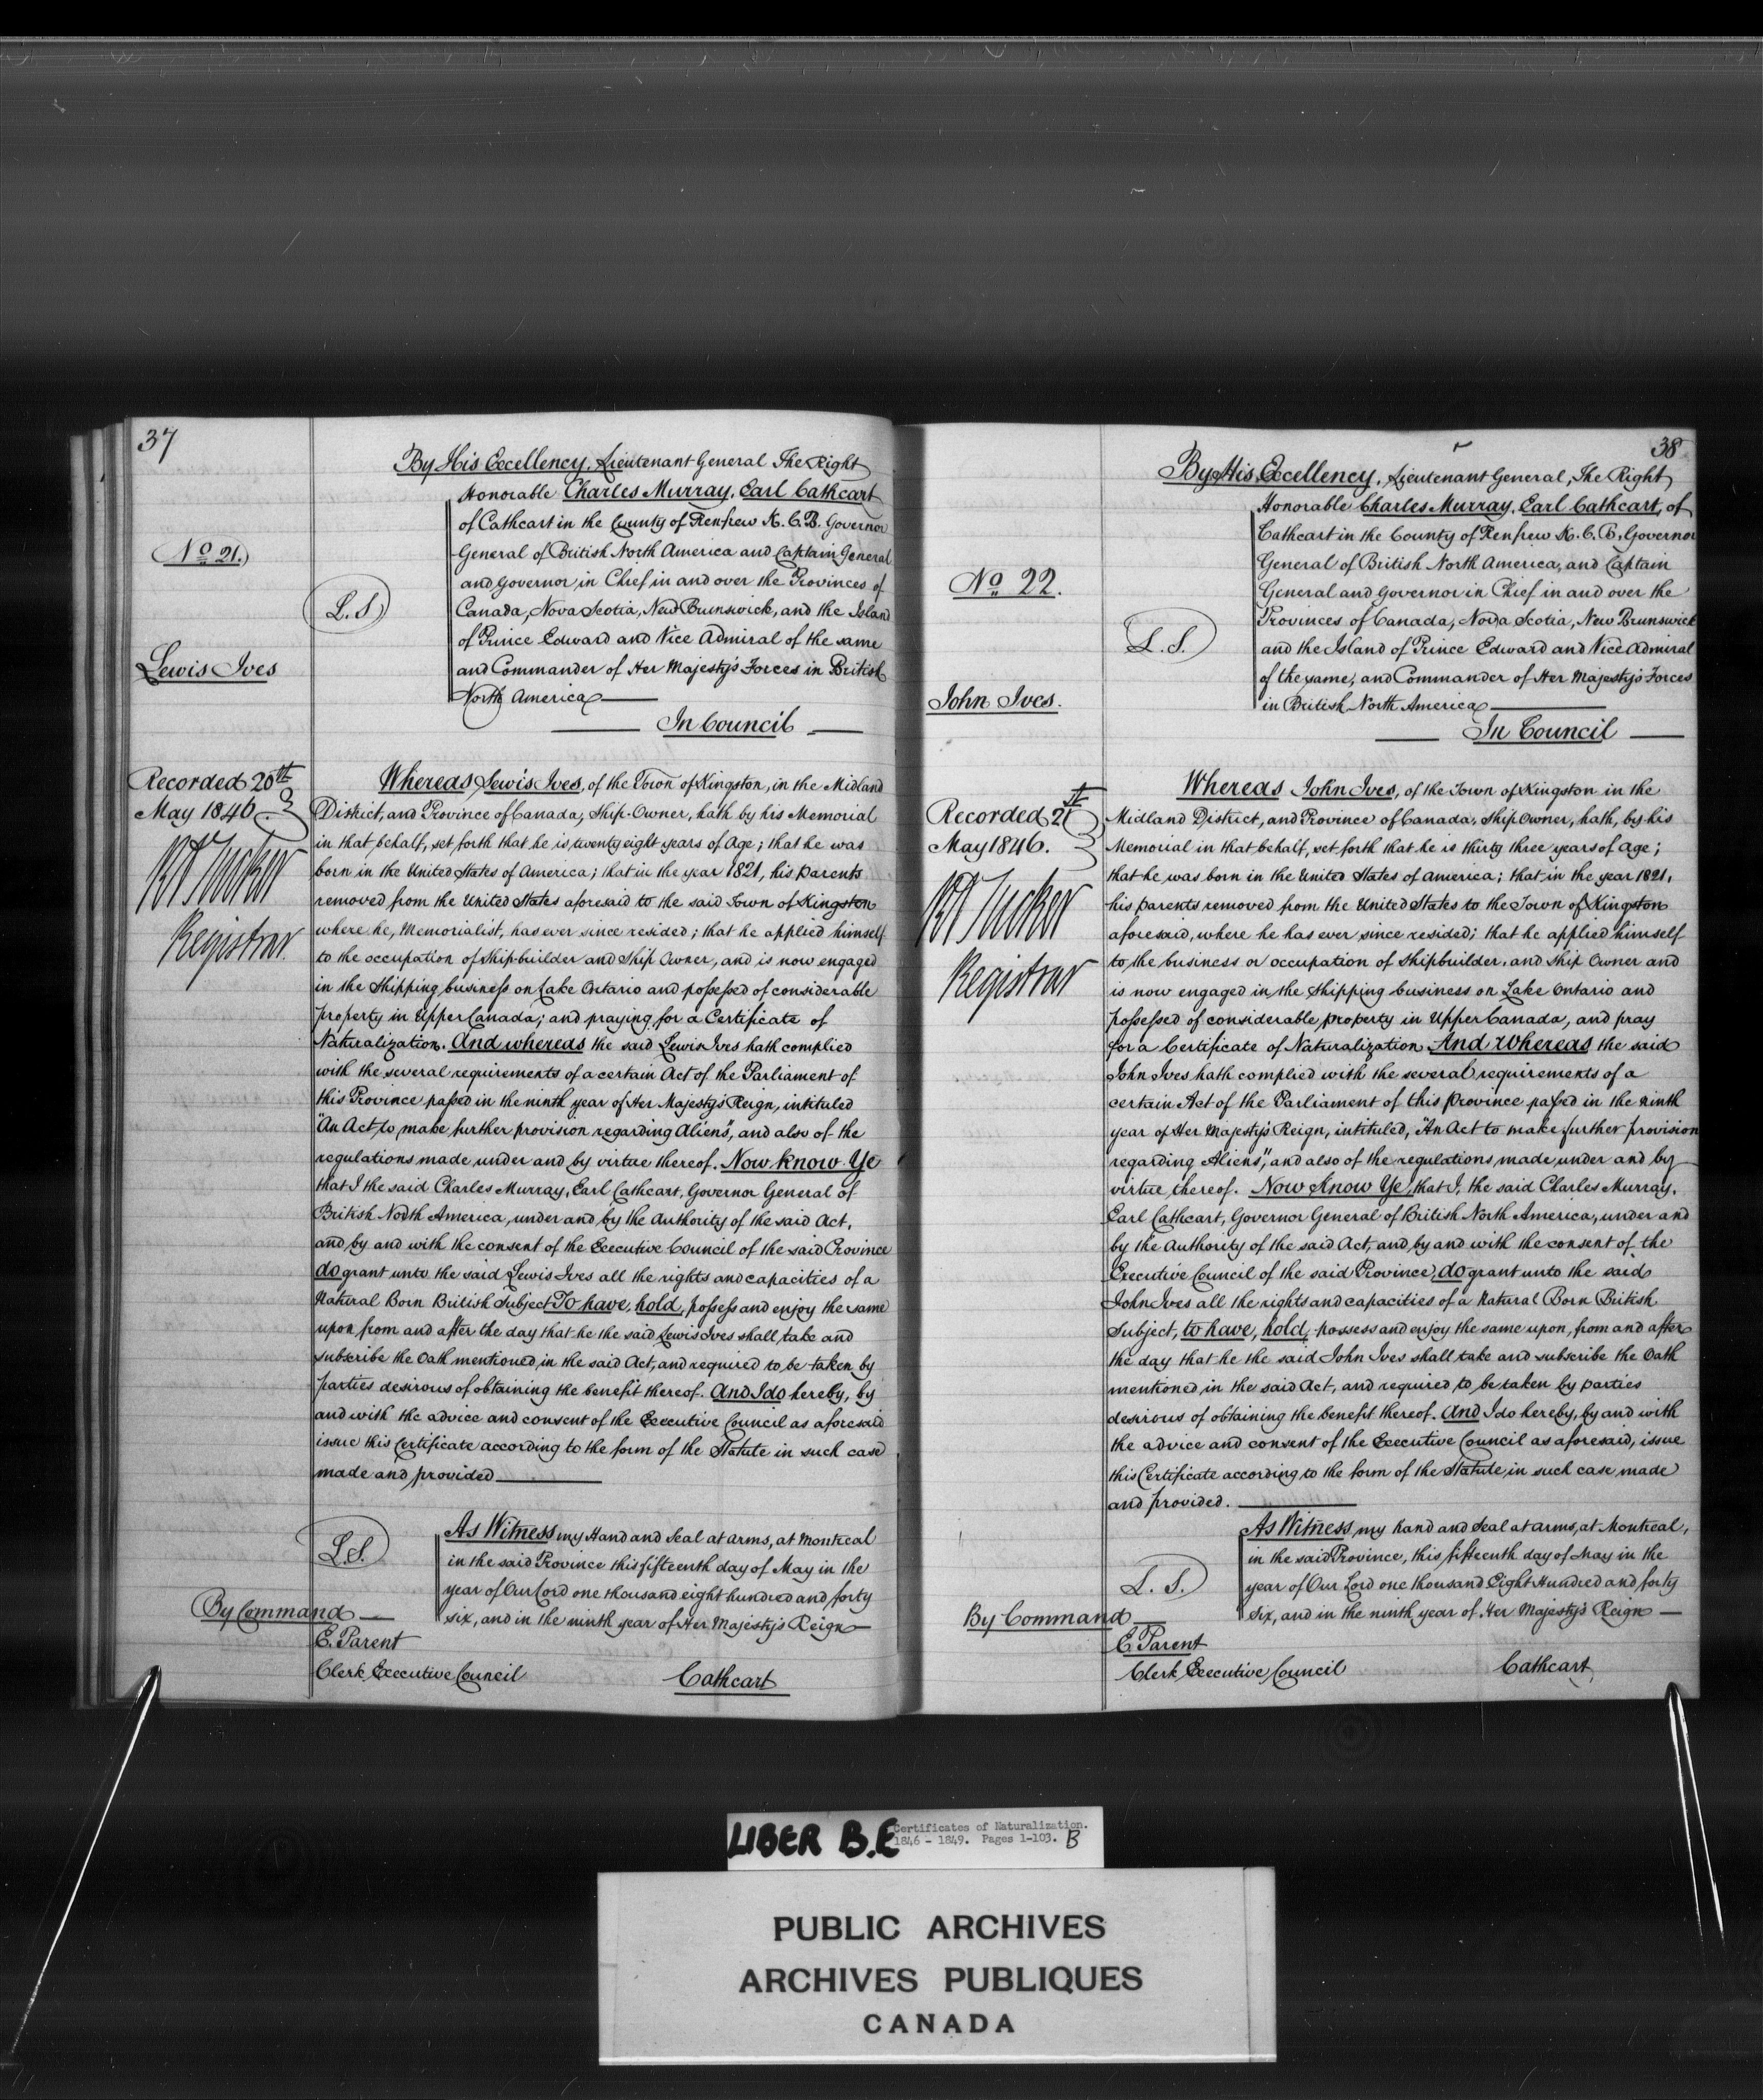 37
No 21.
Lewis Ives
Recorded 20th
May 1846.
RATucker
Registrar.
L.S
By His Excellency, Lieutenant General The Right
Honorable Charles Murray, Earl Cathcart
of Cathcart in the County of Renfrew K.C.B. Governor
General of British North America and Captain General
and Governor in Chief in and over the Provinces of
Canada, Nova Scotia, New Brunswick, and the Island
of Prince Edward and Vice Admiral of the same
and Commander of Her Majesty's Forces in British
North America
In Council
Whereas Lewis Ives, of the Town of Kingston, in the Midland
District, and Province of Canada, Ship-Owner, hath by his Memorial
in that behalf, set forth that he is twenty eight years of Age; that he was
born in the United States of America; that in the year 1821, his parents
removed from the United States aforesaid to the said Town of Kingston
where he, Memorialist, has ever since resided; that he applied himself
to the occupation of Shipbuilder and Ship Owner, and is now engaged
in the Shipping business on Lake Ontario and possessed of considerable
property in Upper Canada; and praying for a Certificate of
Naturalization. And whereas the said Lewis Ives hath complied
with the several requirements of a certain Act of the Parliament of
this Province passed in the ninth year of Her Majesty's Reign, intituled
"An Act to make further provision regarding Aliens", and also of the
regulations made under and by virtue thereof. Now know Ye
that I the said Charles Murray, Earl Cathcart, Governor General of
British North America, under and by the authority of the said Act,
and by and with the consent of the Executive Council of the said Province
do grant unto the said Lewis Ives all the rights and capacities of a
Natural Born British Subject To have, hold, possess and enjoy the same
upon from and after the day that he the said Lewis Ives shall take and
subscribe the Oath mentioned in the said Act, and required to be taken by
parties desirous of obtaining the benefit thereof. And I do hereby, by
and with the advice and consent of the Executive Council as aforesaid
issue this Certificate according to the form of the Statute in such case
made and provided
L.S.
As Witness my Hand and Seal at arms, at Montreal
in the said Province this fifteenth day of May in the
year of Our Lord one thousand eight hundred and forty
six, and in the ninth year of Her Majesty's Reign
By Command
E. Parent
Clerk Executive Council
Cathcart
38
No 22.
John Ives.
Recorded 21st
May 1846.
RATucker
Registrar
L.S.
By His Excellency, Lieutenant General, The Right
Honorable Charles Murray, Earl Cathcart, of
Cathcart in the County of Renfrew K.C.B, Governor
General of British North America, and Captain
General and Governor in Chief in and over the
Provinces of Canada, Nova Scotia, New Brunswick
and the Island of Prince Edward and Vice Admiral
of the same, and Commander of Her Majesty's Forces
in British North America
In Council
Whereas John Ives, of the Town of Kingston in the
Midland District, and Province of Canada, Ship Owner, hath, by his
Memorial in that behalf, set forth that he is thirty three years of Age;
that he was born in the United States of America; that in the year 1821,
his parents removed from the United States to the Town of Kingston
aforesaid, where he has ever since resided; that he applied himself
to the business or occupation of Shipbuilder, and Ship Owner and
is now engaged in the Shipping business on Lake Ontario and
possessed of considerable property in Upper Canada, and pray
for a Certificate of Naturalization And Whereas the said
John Ives hath complied with the several requirements of a
certain Act of the Parliament of this Province passed in the ninth
year of Her Majesty's Reign, intituled, "An Act to make further provision
regarding Aliens", and also of the regulations made under and by
virtue thereof. Now Know Ye, that I, the said Charles Murray,
Earl Cathcart, Governor General of British North America, under and
by the authority of the said Act, and by and with the consent of the
Executive Council of the said Province, do grant unto the said
John Ives all the rights and capacities of a Natural Born British
Subject, to have, hold, possess and enjoy the same upon, from and after
the day that he the said John Ives shall take and subscribe the Oath
mentioned in the said Act, and required to be taken by parties
desirous of obtaining the benefit thereof. And I do hereby, by and with
the advice and consent of the Executive Council as aforesaid, issue
this Certificate according to the form of the Statute in such case made
and provided.
L.S.
As Witness my hand and Seal at arms, at Montreal,
in the said Province, this fifteenth day of May in the
year of Our Lord one thousand Eight Hundred and forty
six, and in the ninth year of Her Majesty's Reign
By Command
E Parent
Clerk Executive Council
Cathcart
LIBER B.E
Certificates of Naturalization.
1846 - 1849. Pages 1-103. B
PUBLIC ARCHIVES
ARCHIVES PUBLIQUES
CANADA